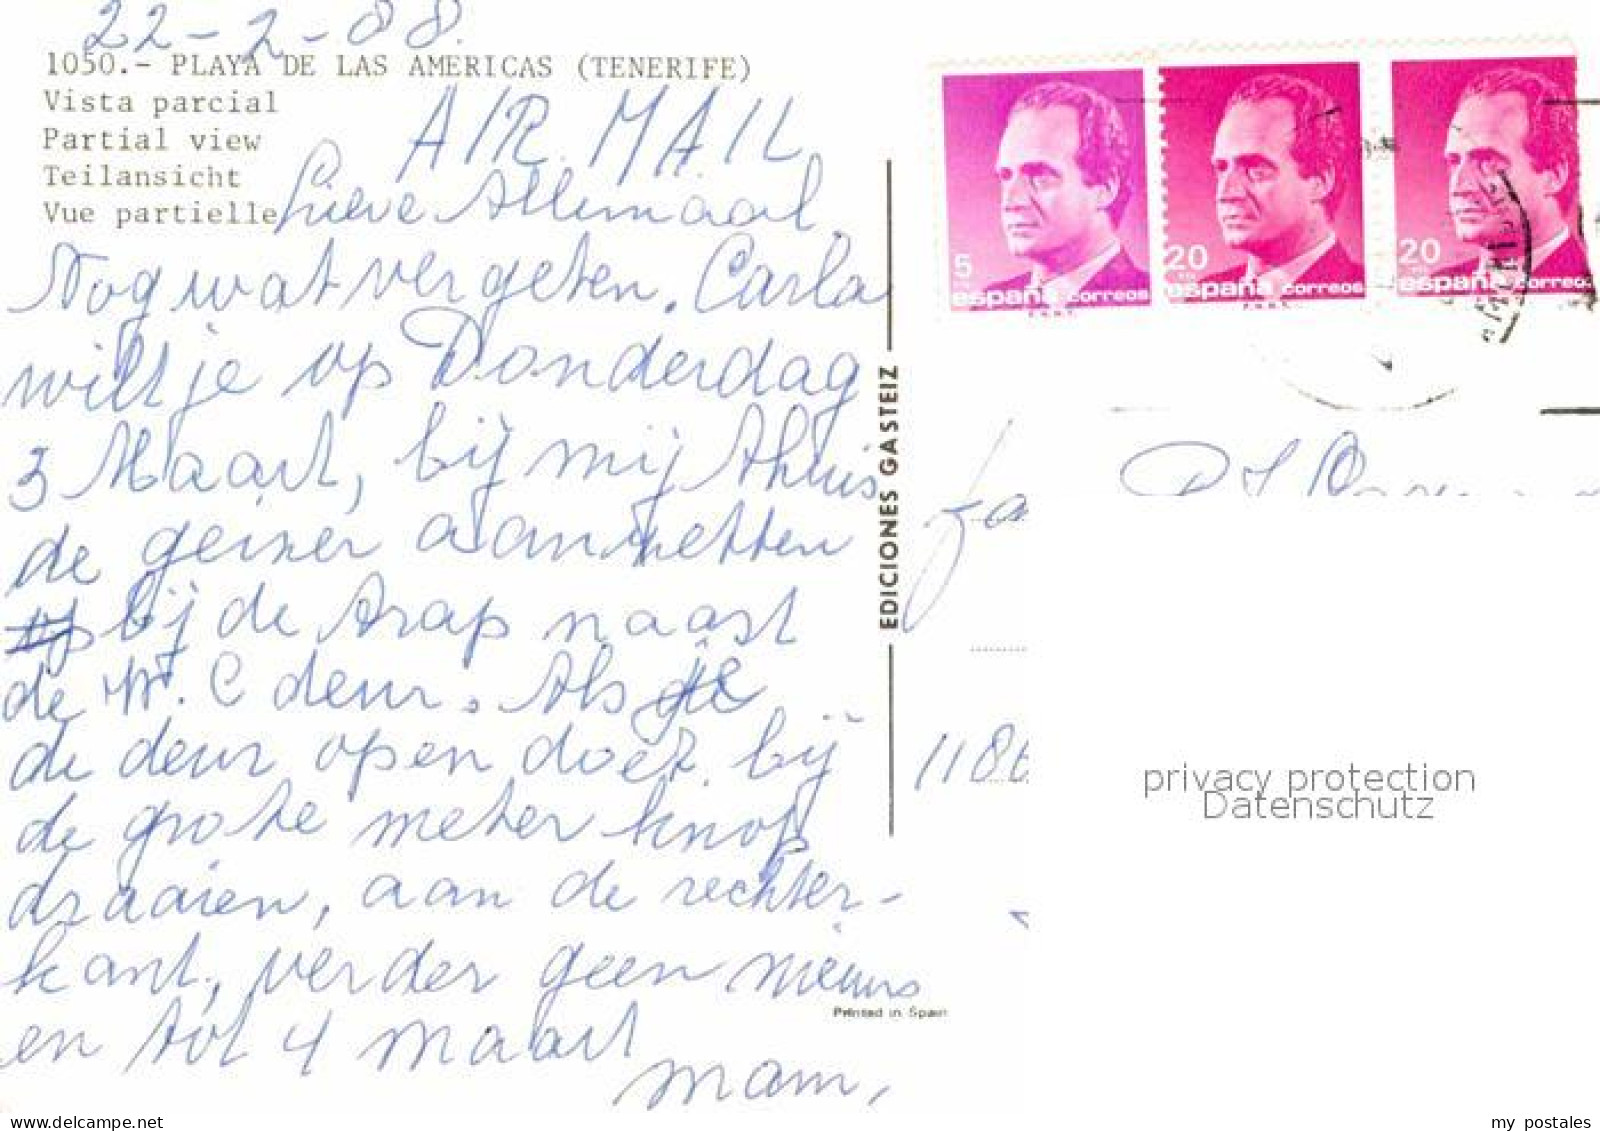 22-2-88.
1050.- PLAYA DE LAS AMERICAS (TENERIFE)
Vista parcial
Partial view
Teilansicht
Vue partielle
AIR MAIL
Lieve Allemaal,
Nog wat vergeten. Carla
wilt je op Donderdag
3 Maart, bij mij thuis
de geiser aanzetten
bij de trap naast
de W.C deur. Als je
de deur open doet, bij
de grote meter knop
draaien, aan de rechter-
kant, verder geen nieuws
en tot 4 maart
mam,
EDICIONES GASTEIZ
Printed in Spain
5
españa correos
F.N.M.T.
20
españa correos
F.N.M.T.
20
españa correos
fa
1186
privacy protection
Datenschutz
www.delcampe.net
my_postales